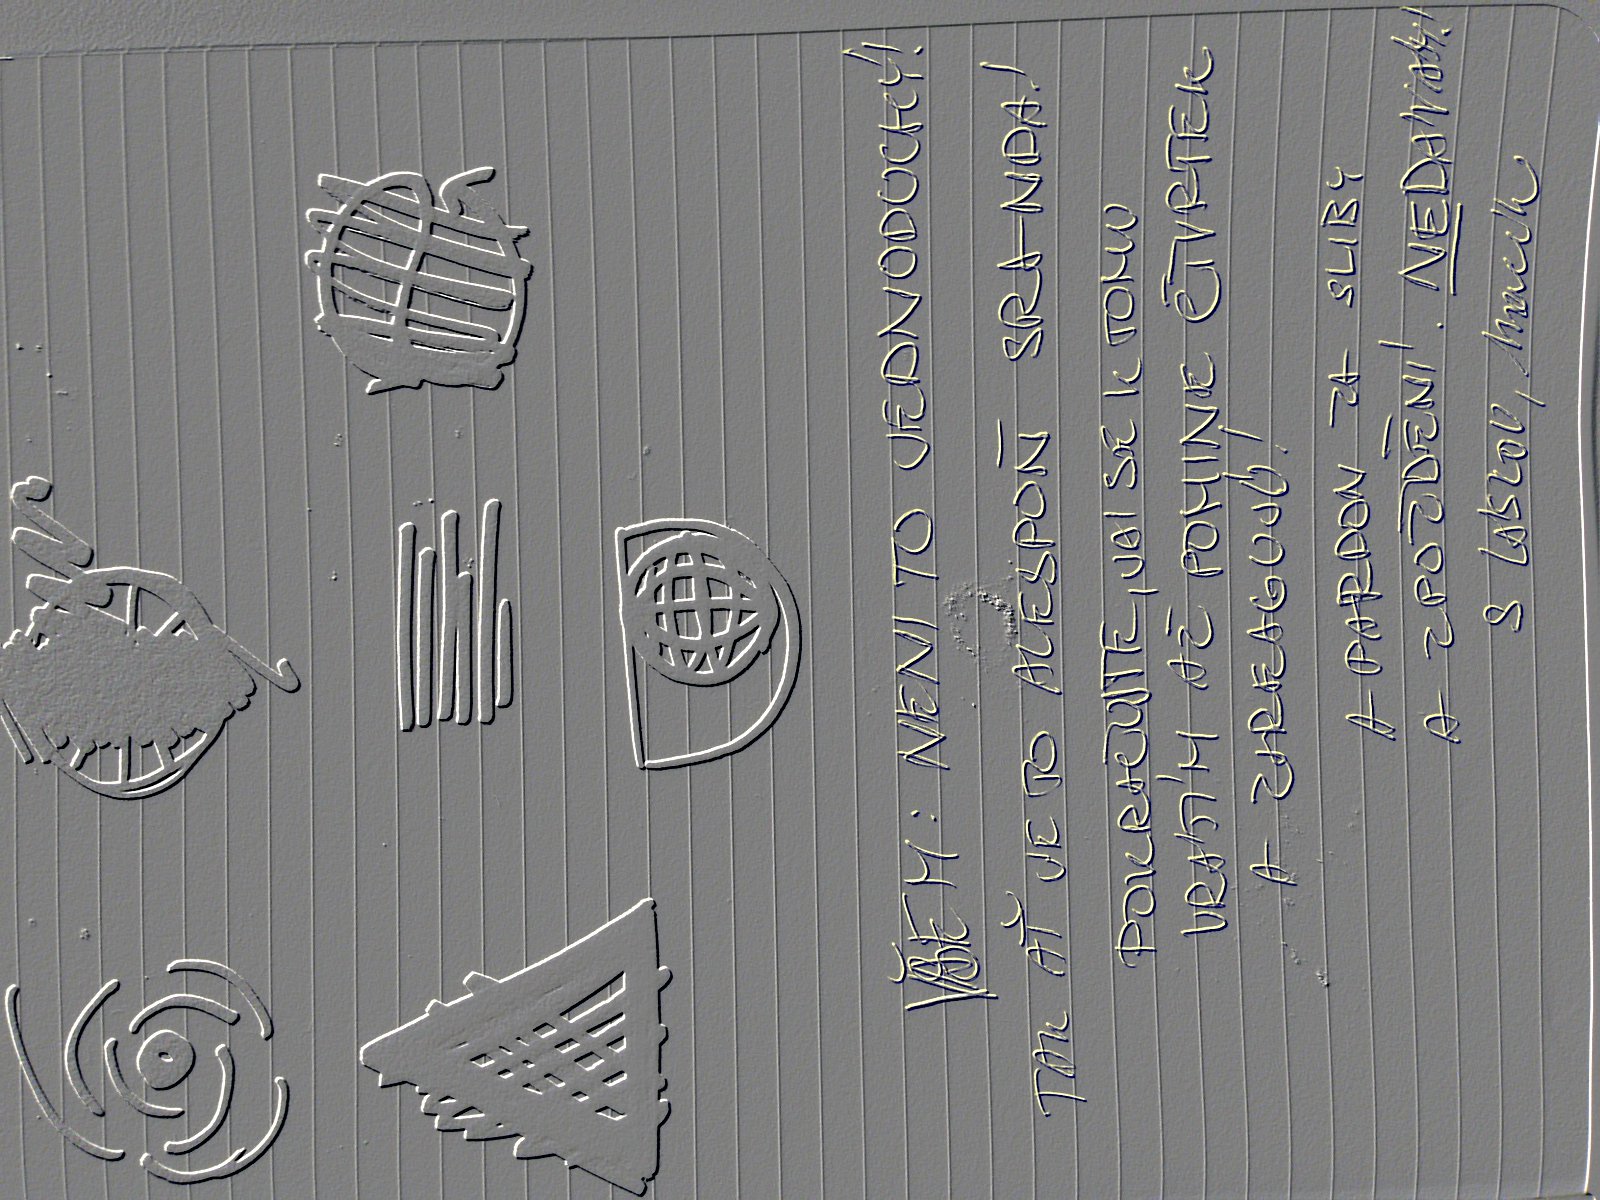 VŠEM: NENÍ TO JEDNODUCHÝ!
TAK AŤ JE TO ALESPOŇ SRA-NDA!
POKRAČUJTE, JAI SE K TOMU
VRÁTÍM AŽ POMINE ČTVRTEK
A ZAREAGUJU!
A-PARDON ZA SLIBY
A ZPOŽDĚNÍ. NEDÁVÁM!
S LÁSKOU,